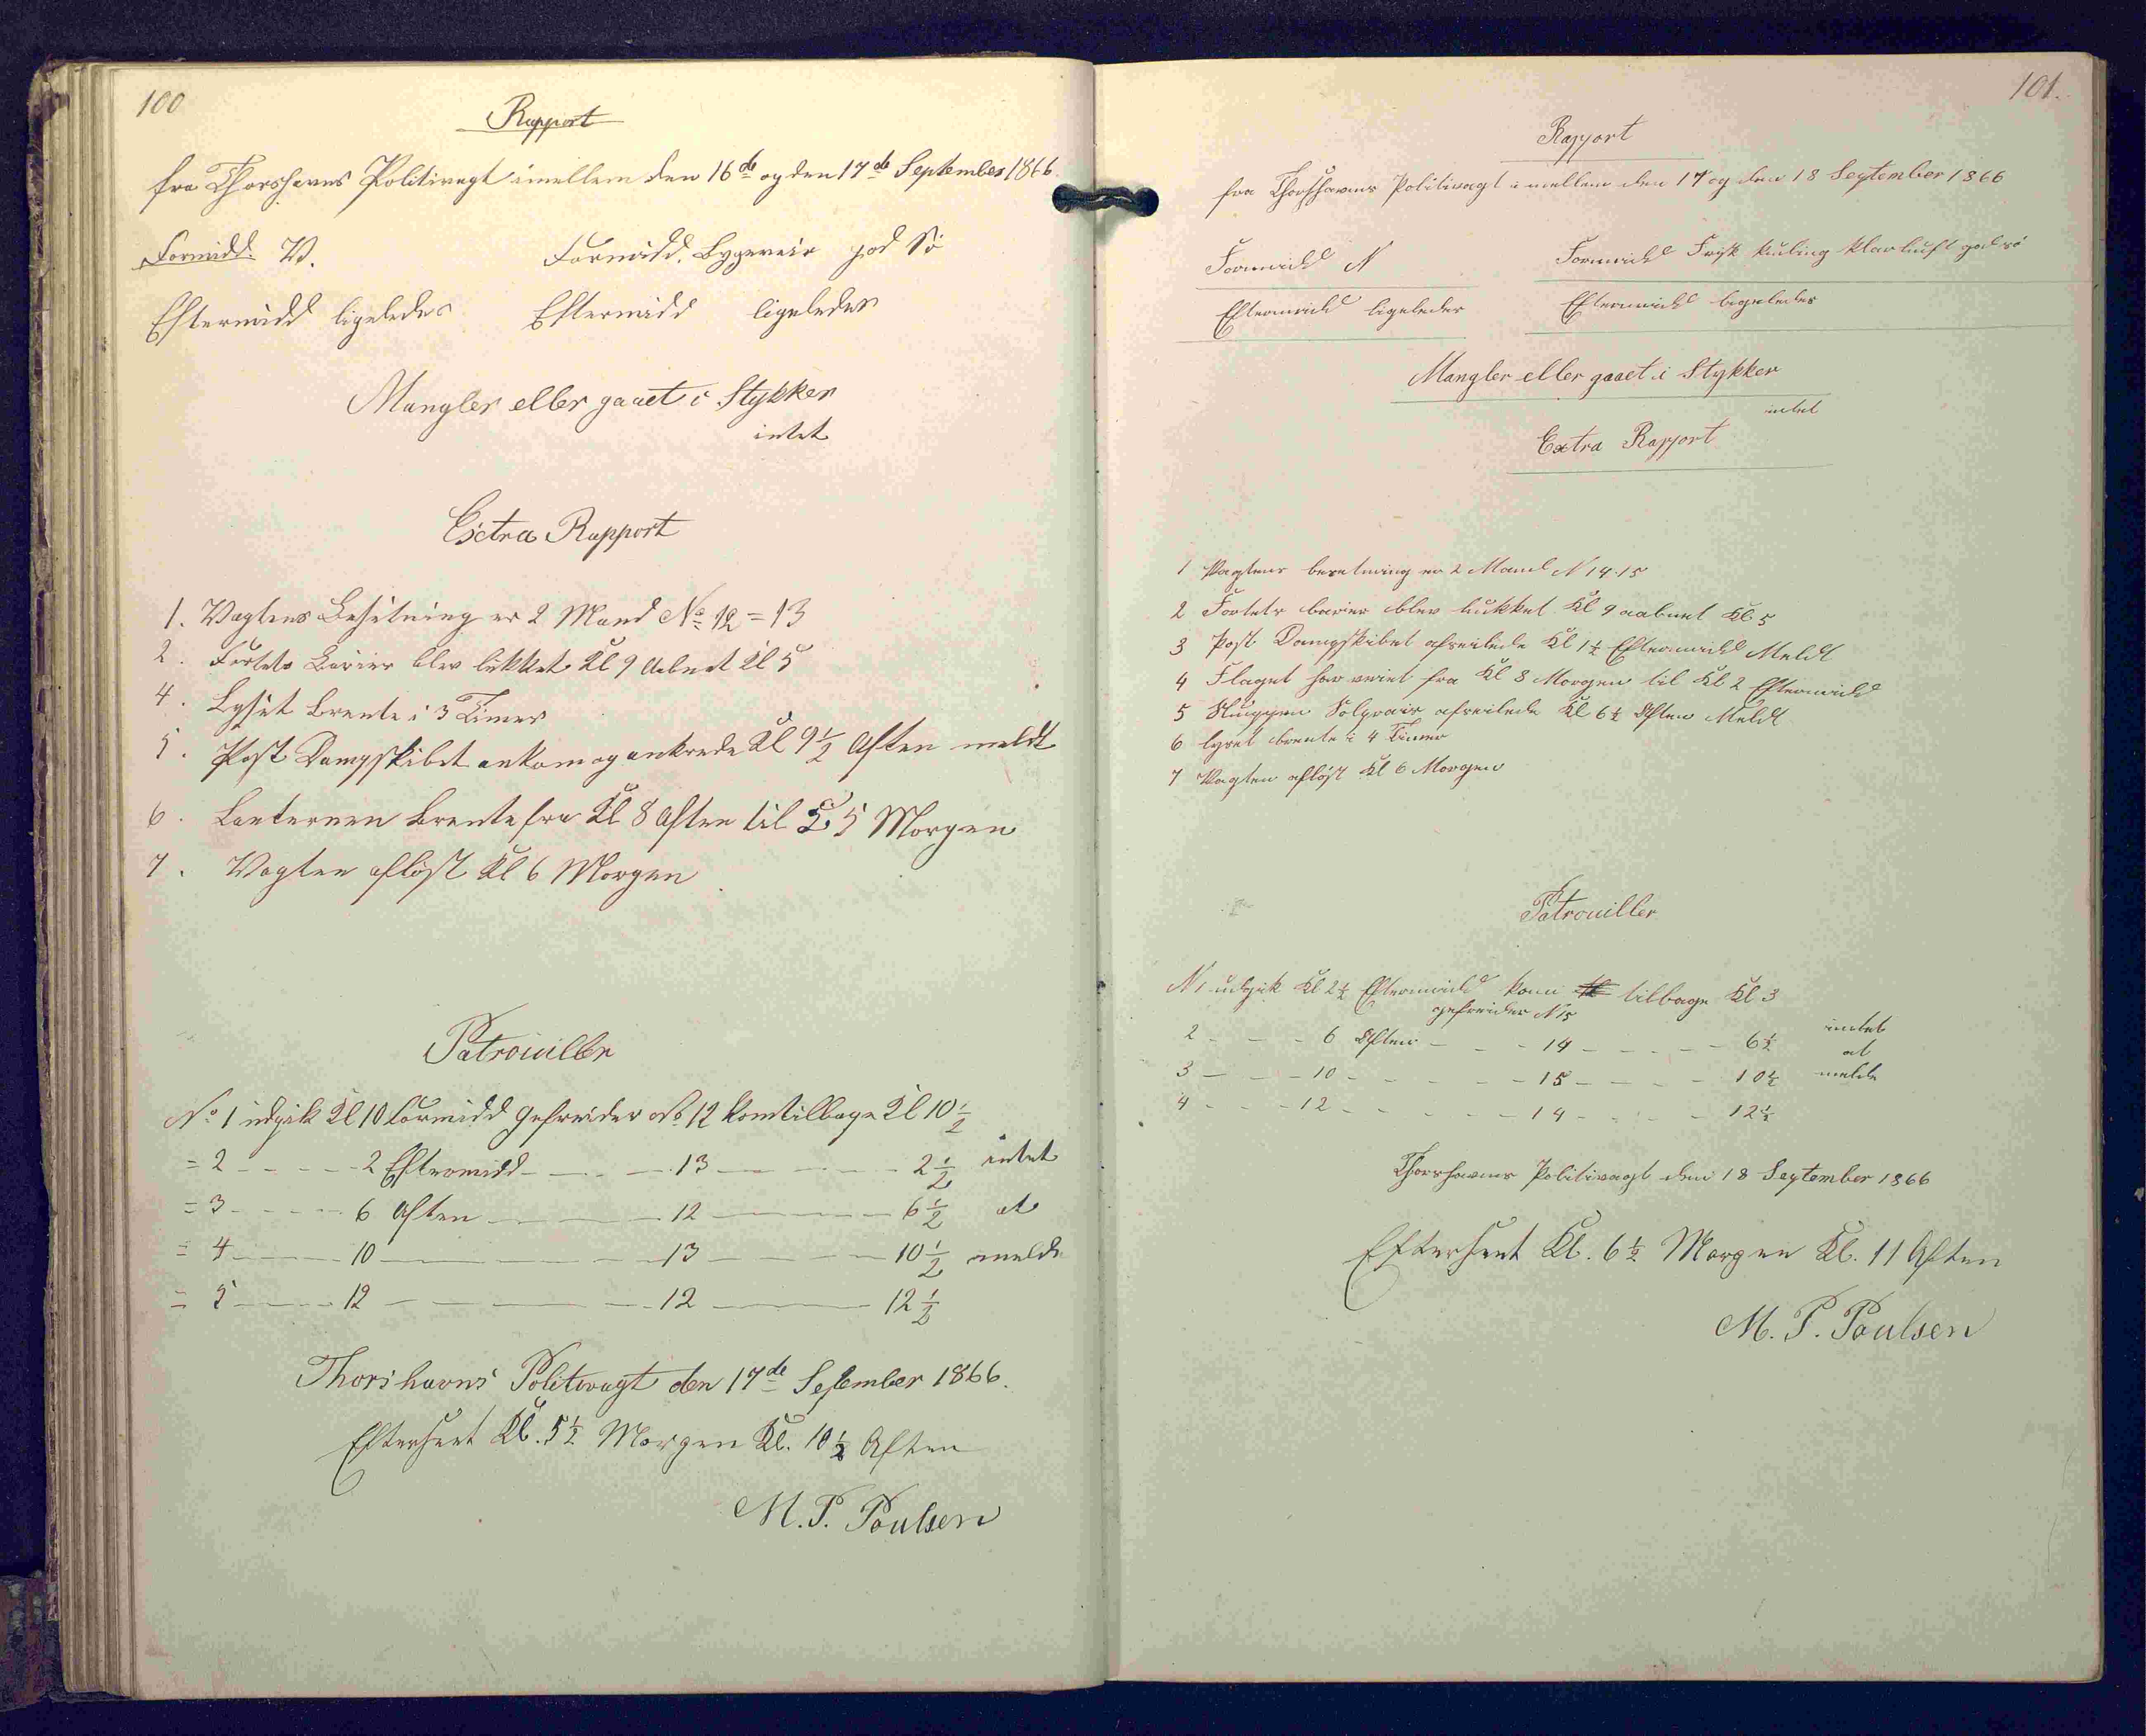 100
Rapport
fra Thorshavns Politivagt imellem den 16de og den 17de September 1866.
Formidd. V. Formidd. Bygeveir god Sö
Eftermidd ligeledes Eftermidd ligeledes
Mangler eller gaaet i Stykker
intet
Extra Rapport
1. Vagtens Besetning er 2 Mand No 12 = 13
2. Fortets Barier blev lukket Kl 9 Aabnet Kl 5
4. Lyset brente i 3 Timer
5. Post Dampskibet ankom og ankrede Kl 9½ Aften meldt
6. Lanternen brente fra Kl 8 Aften til 5 Morgen
7. Vagten aflöst Kl 6 Morgen
Patrouiller
No 1 udgik Kl 10 Formidd Gefreider No 12 kom tilbage Kl 10½
= 2 - - - - - 2 Eftermidd - - - - 13 - - - - 2½ intet
= 3 - - - - - 6 Aften - - - - 12 - - - - 6½ at
= 4 - - - - - 10 - - - - 13 - - - - 10½ melde
= 5 - - - - - 12 - - - - 12 - - - - 12½
Thorshavns Politivagt den 17de September 1866.
Efterseet Kl. 5½ Morgen Kl. 10½ Aften
M. P. Poulsen
101.
Rapport
fra Thorshavns Politivagt imellem den 17 og den 18 September 1866
Formidd N Formidd Frisk kuling klar luft god sö
Eftermidd ligeledes Eftermidd ligeledes
Mangler eller gaaet i Stykker
intet
Extra Rapport
1 Vagtens besetning er 2 Mand N 14-15
2 Fortets barier blev lukket Kl 9 aabnet Kl 5
3 Post Dampskibet afseilede Kl 1½ Eftermidd Meldt
4 Flaget har veiet fra Kl 8 Morgen til Kl 2 Eftermidd
5 Sluppen afseilede Kl 6½ Aften Meldt
6 lyset brente i 4 Timer
7 Vagten aflöst Kl 6 Morgen
Patrouiller
N 1 udgik Kl 2½ Eftermidd kom tilbage Kl 3
gefreider N 15
2 - - - - 6 Aften - - - 14 - - - - 6½ intet
3 - - - - 10 - - - - 15 - - - - 10½ at melde
4 - - - - 12 - - - - 14 - - - - 12½
Thorshavns Politivagt den 18 September 1866
Efterseet Kl. 6½ Morgen Kl. 11 Aften
M. P. Poulsen